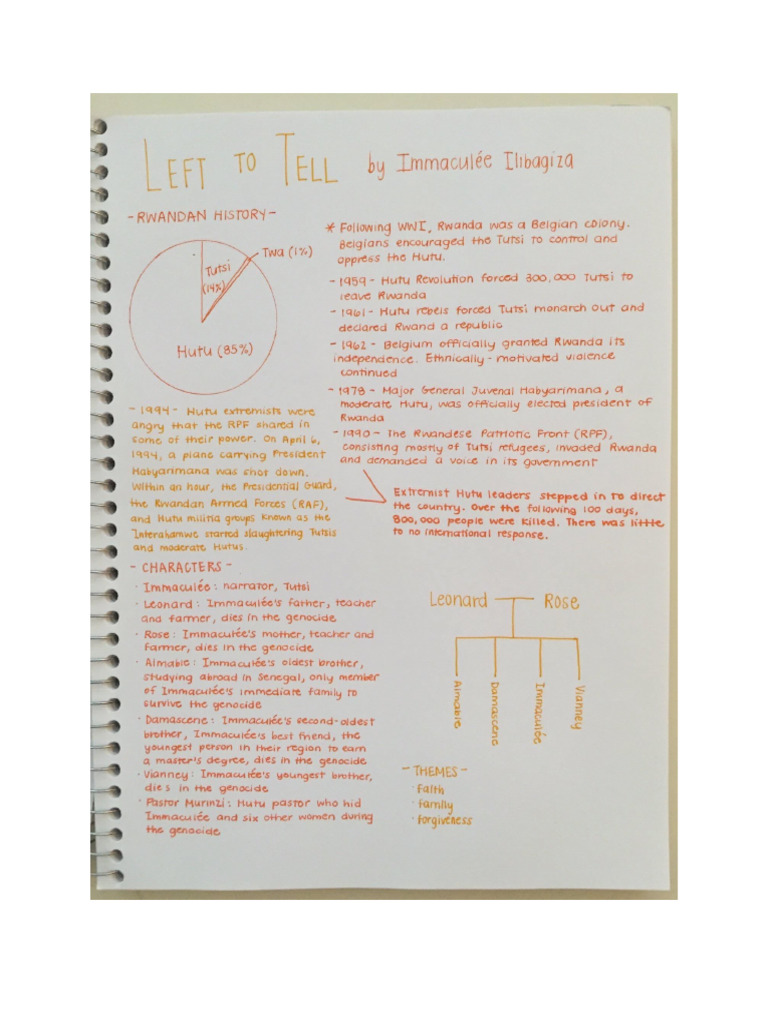 LEFT TO TELL by Immaculée Ilibagiza
- RWANDAN HISTORY -
Tutsi
(14%)
Twa (1%)
Hutu (85%)
* Following WWI, Rwanda was a Belgian colony.
Belgians encouraged the Tutsi to control and
oppress the Hutu.
- 1959 - Hutu Revolution forced 300,000 Tutsi to
leave Rwanda
- 1961 - Hutu rebels forced Tutsi monarch out and
declared Rwand a republic
- 1962 - Belgium officially granted Rwanda its
independence. Ethnically-motivated violence
continued
- 1978 - Major General Juvenal Habyarimana, a
moderate Hutu, was officially elected president of
Rwanda
- 1990 - The Rwandese Patriotic Front (RPF),
consisting mostly of Tutsi refugees, invaded Rwanda
and demanded a voice in its government
- 1994 - Hutu extremists were
angry that the RPF shared in
some of their power. On April 6,
1994, a plane carrying President
Habyarimana was shot down.
Within an hour, the Presidential Guard,
the Rwandan Armed Forces (RAF),
and Hutu militia groups known as the
Interahamwe started slaughtering Tutsis
and moderate Hutus.
Extremist Hutu leaders stepped in to direct
the country. Over the following 100 days,
800,000 people were killed. There was little
to no international response.
- CHARACTERS -
· Immaculée: narrator, Tutsi
· Leonard: Immaculée's father, teacher
and farmer, dies in the genocide
· Rose: Immaculée's mother, teacher and
farmer, dies in the genocide
· Aimable: Immaculée's oldest brother,
studying abroad in Senegal, only member
of Immaculée's immediate family to
survive the genocide
· Damascene: Immaculée's second-oldest
brother, Immaculée's best friend, the
youngest person in their region to earn
a master's degree, dies in the genocide
· Vianney: Immaculée's youngest brother,
dies in the genocide
· Pastor Murinzi: Hutu pastor who hid
Immaculée and six other women during
the genocide
Leonard Rose
Aimable
Damascene
Immaculée
Vianney
- THEMES -
· faith
· family
· forgiveness